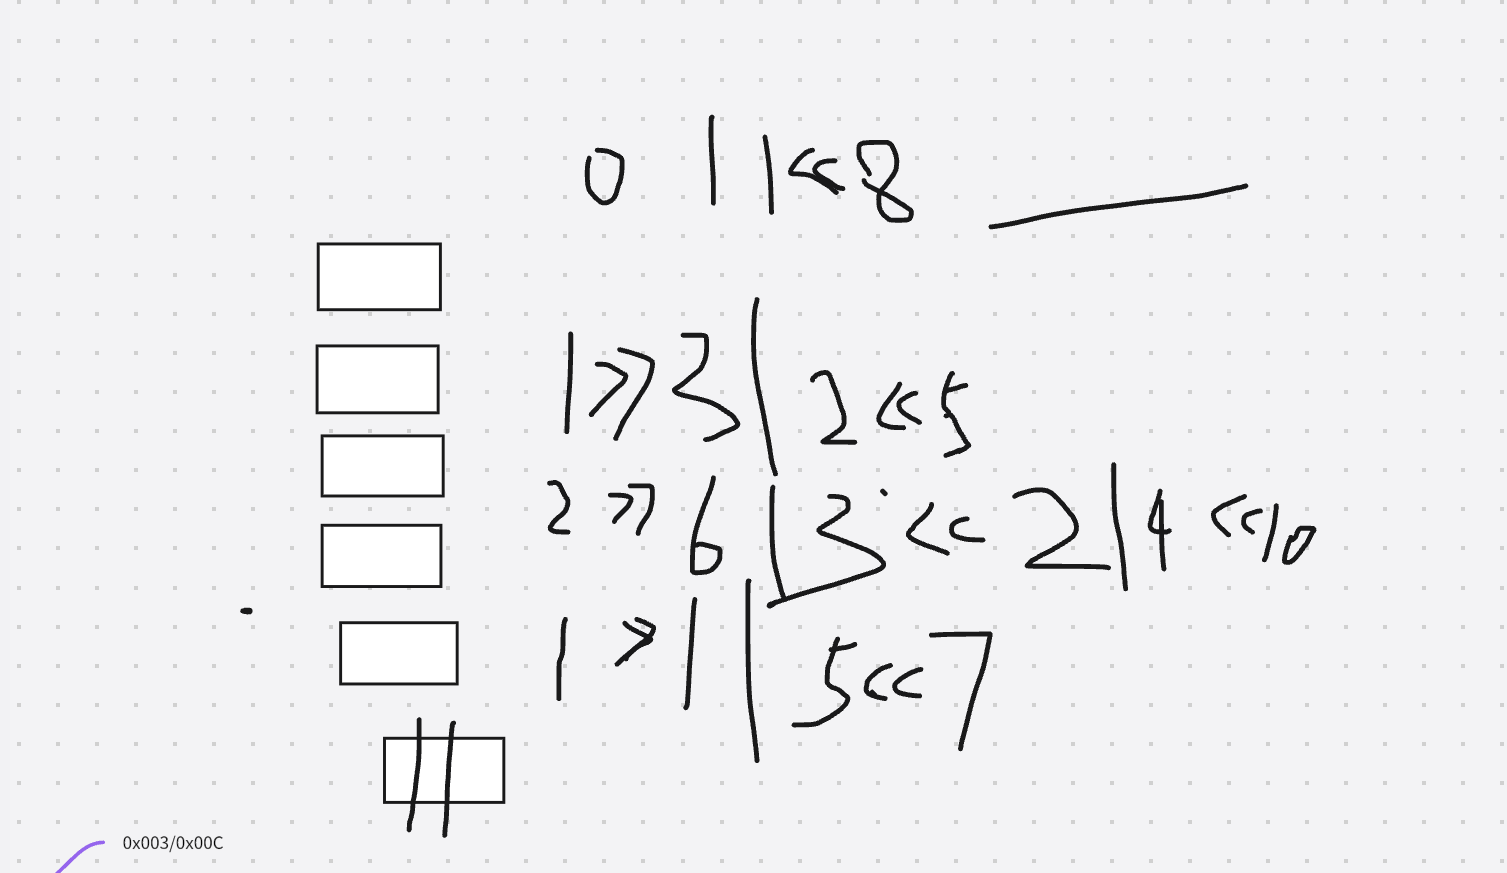 0 | 1 << 8
1 >> 3 | 2 << 5
2 >> 6 | 3 << 2 | 4 << 10
1 > 1 | 5 << 7
0x003/0x00C